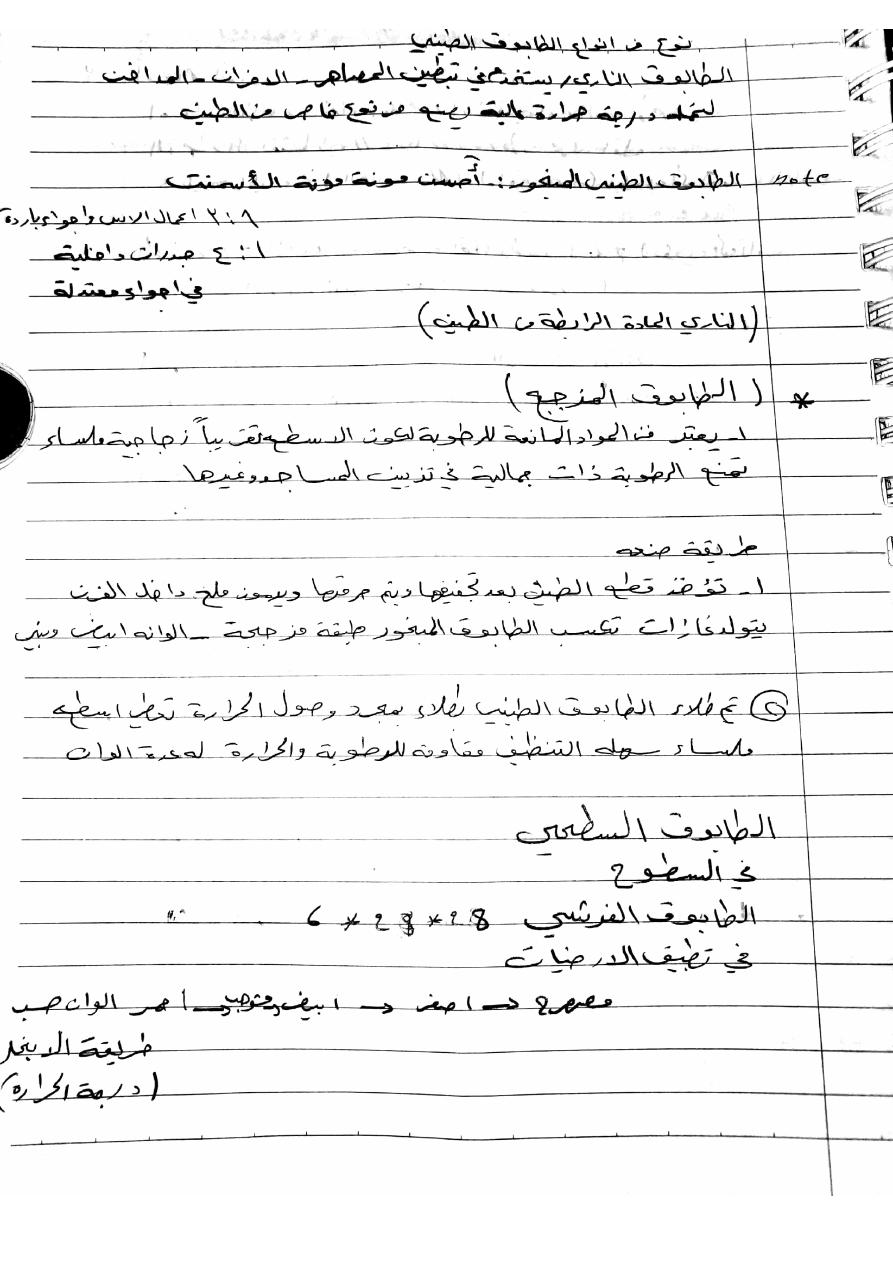 نوع من انواع الطابوق الطيني
الطابوق الناري/ يستخدم في تبطين المصاهر - الافران - المداخن
لتحمله درجة حرارة عالية يصنع من نوع خاص من الطين
note الطابوق الطيني المفخور: أحسن مونة مونة الأسمنت
١:٢ اعمال الاسس واجواء باردة
١:٤ جدران داخلية
في اجواء معتدلة
(الناري المادة الرابطة من الطين)
* (الطابوق المزجج)
١- يعتبر من المواد المانعة للرطوبة لكون الاسطح تقريباً زجاجية ملساء
تمنع الرطوبة ذات جمالية في تزيين المساجد وغيرها
طريقة صنعه
١- تؤخذ قطع الطين بعد تجفيفها ويتم حرقها ويرش ملح داخل الفرن
يتولد غازات تكسب الطابوق المفخور طبقة مزججة - الوانه ابيض وبني
② تم طلاء الطابوق الطيني بطلاء بمجرد وصول الحرارة تعطي اسطح
ملساء سهلة التنظيف مقاومة للرطوبة والحرارة له عدة الوان
الطابوق السطحي
في السطوح
الطابوق الفرشي 28*28*6
في تطبيق الارضيات
مصهرج -> اصفر -> ابيض -> أحمر الوان حسب
طريقة
(درجة الحرارة)